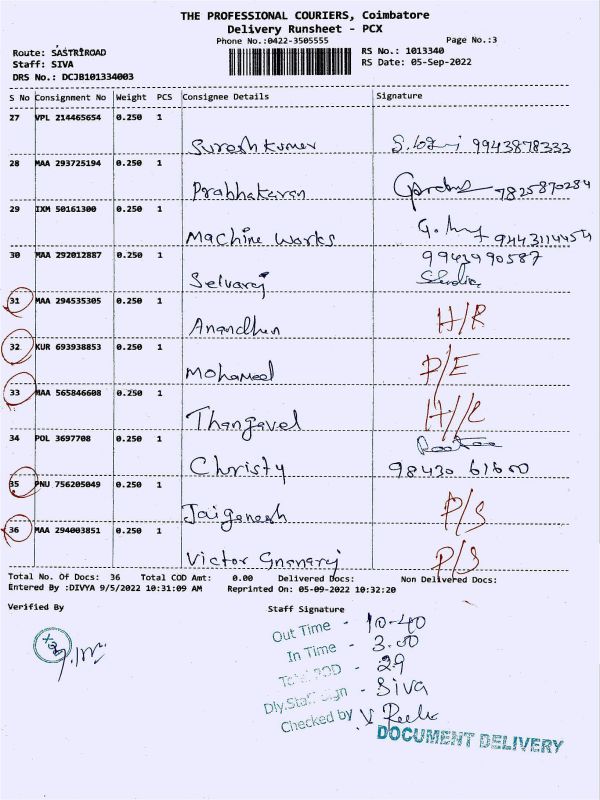 THE PROFESSIONAL COURIERS, Coimbatore
Delivery Runsheet - PCX
Phone No.:0422-3505555
Page No.:3
Route: SASTRIROAD
RS No.: 1013340
Staff: SIVA
RS Date: 05-Sep-2022
DRS No.: DCJB101334003
S No Consignment No Weight PCS Consignee Details Signature
27 VPL 214465654 0.250 1
Sureshkumar 9943878333
28 MAA 293725194 0.250 1
Prabhakaran 7825870284
29 IXM 50161300 0.250 1
Machine Works 9443114454
30 MAA 292012887 0.250 1 9943990587
Selvaraj
31 MAA 294535305 0.250 1
Anandhan H/R
32 KUR 693938853 0.250 1
Mohamed P/E
33 MAA 565846608 0.250 1
Thangavel
34 POL 3697708 0.250 1
Christy 98430 61600
35 PNU 756205049 0.250 1
Jaiganesh P/S
36 MAA 294003851 0.250 1
Victor Gnanaraj P/S
Total No. Of Docs: 36 Total COD Amt: 0.00 Delivered Docs: Non Delivered Docs:
Entered By :DIVYA 9/5/2022 10:31:09 AM Reprinted On: 05-09-2022 10:32:20
Verified By Staff Signature
Out Time - 10-40
In Time - 3.00
Total POD - 29
Dly.Staff Sign - Siva
Checked by
DOCUMENT DELIVERY